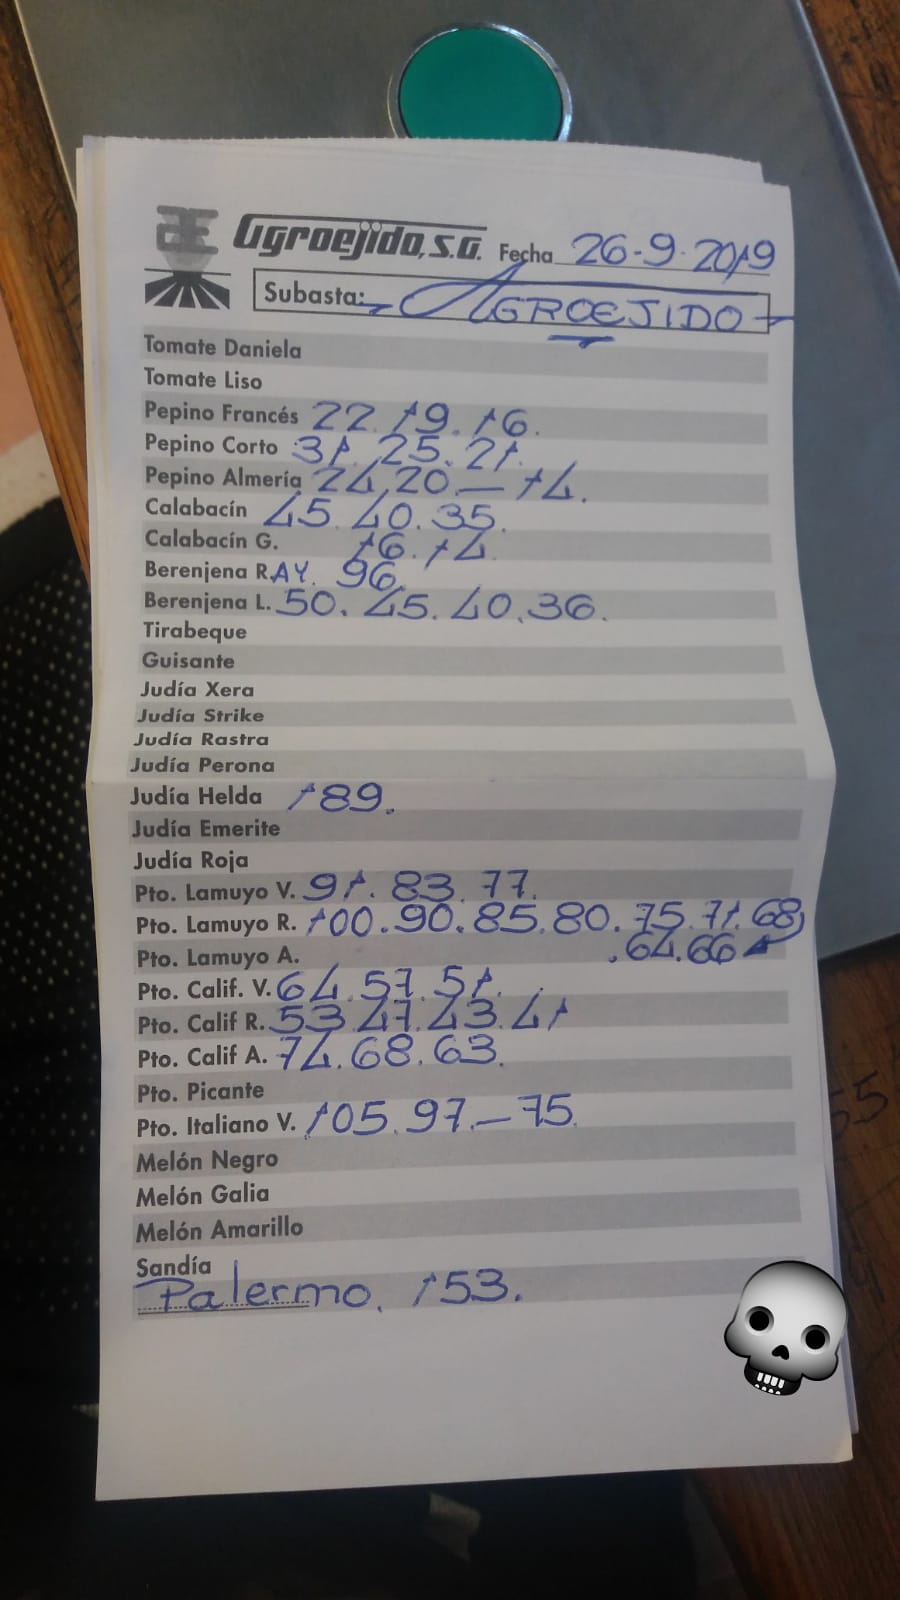 Agroejido, S.A. Fecha 26-9-2019
Subasta: AGROEJIDO
Tomate Daniela
Tomate Liso
Pepino Francés 22. 19. 16.
Pepino Corto 31. 25. 21.
Pepino Almería 24. 20. — 14.
Calabacín 45. 40. 35.
Calabacín G. 16. 14.
Berenjena RAY. 96.
Berenjena L. 50. 45. 40. 36.
Tirabeque
Guisante
Judía Xera
Judía Strike
Judía Rastra
Judía Perona
Judía Helda 189.
Judía Emerite
Judía Roja
Pto. Lamuyo V. 91. 83. 77.
Pto. Lamuyo R. 100. 90. 85. 80. 75. 71. 68
Pto. Lamuyo A. . 64. 66
Pto. Calif. V. 64. 57. 51.
Pto. Calif R. 53. 47. 43. 41
Pto. Calif A. 74. 68. 63.
Pto. Picante
Pto. Italiano V. 105. 97. — 75.
Melón Negro
Melón Galia
Melón Amarillo
Sandía
Palermo. 153.